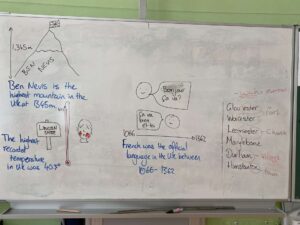 1,345m
BEN NEVIS
Ben Nevis is the
highest mountain in the
UK at 1345m
LINCOLN
The highest
recorded
temperature
in UK was 40.3°
Bonjour
ça va?
ça va
bien
1066
1362
French was the official
language in the UK between
1066 - 1362
Gloucester
Worcester
Leominster
Marylebone
Durham
Hunstanton